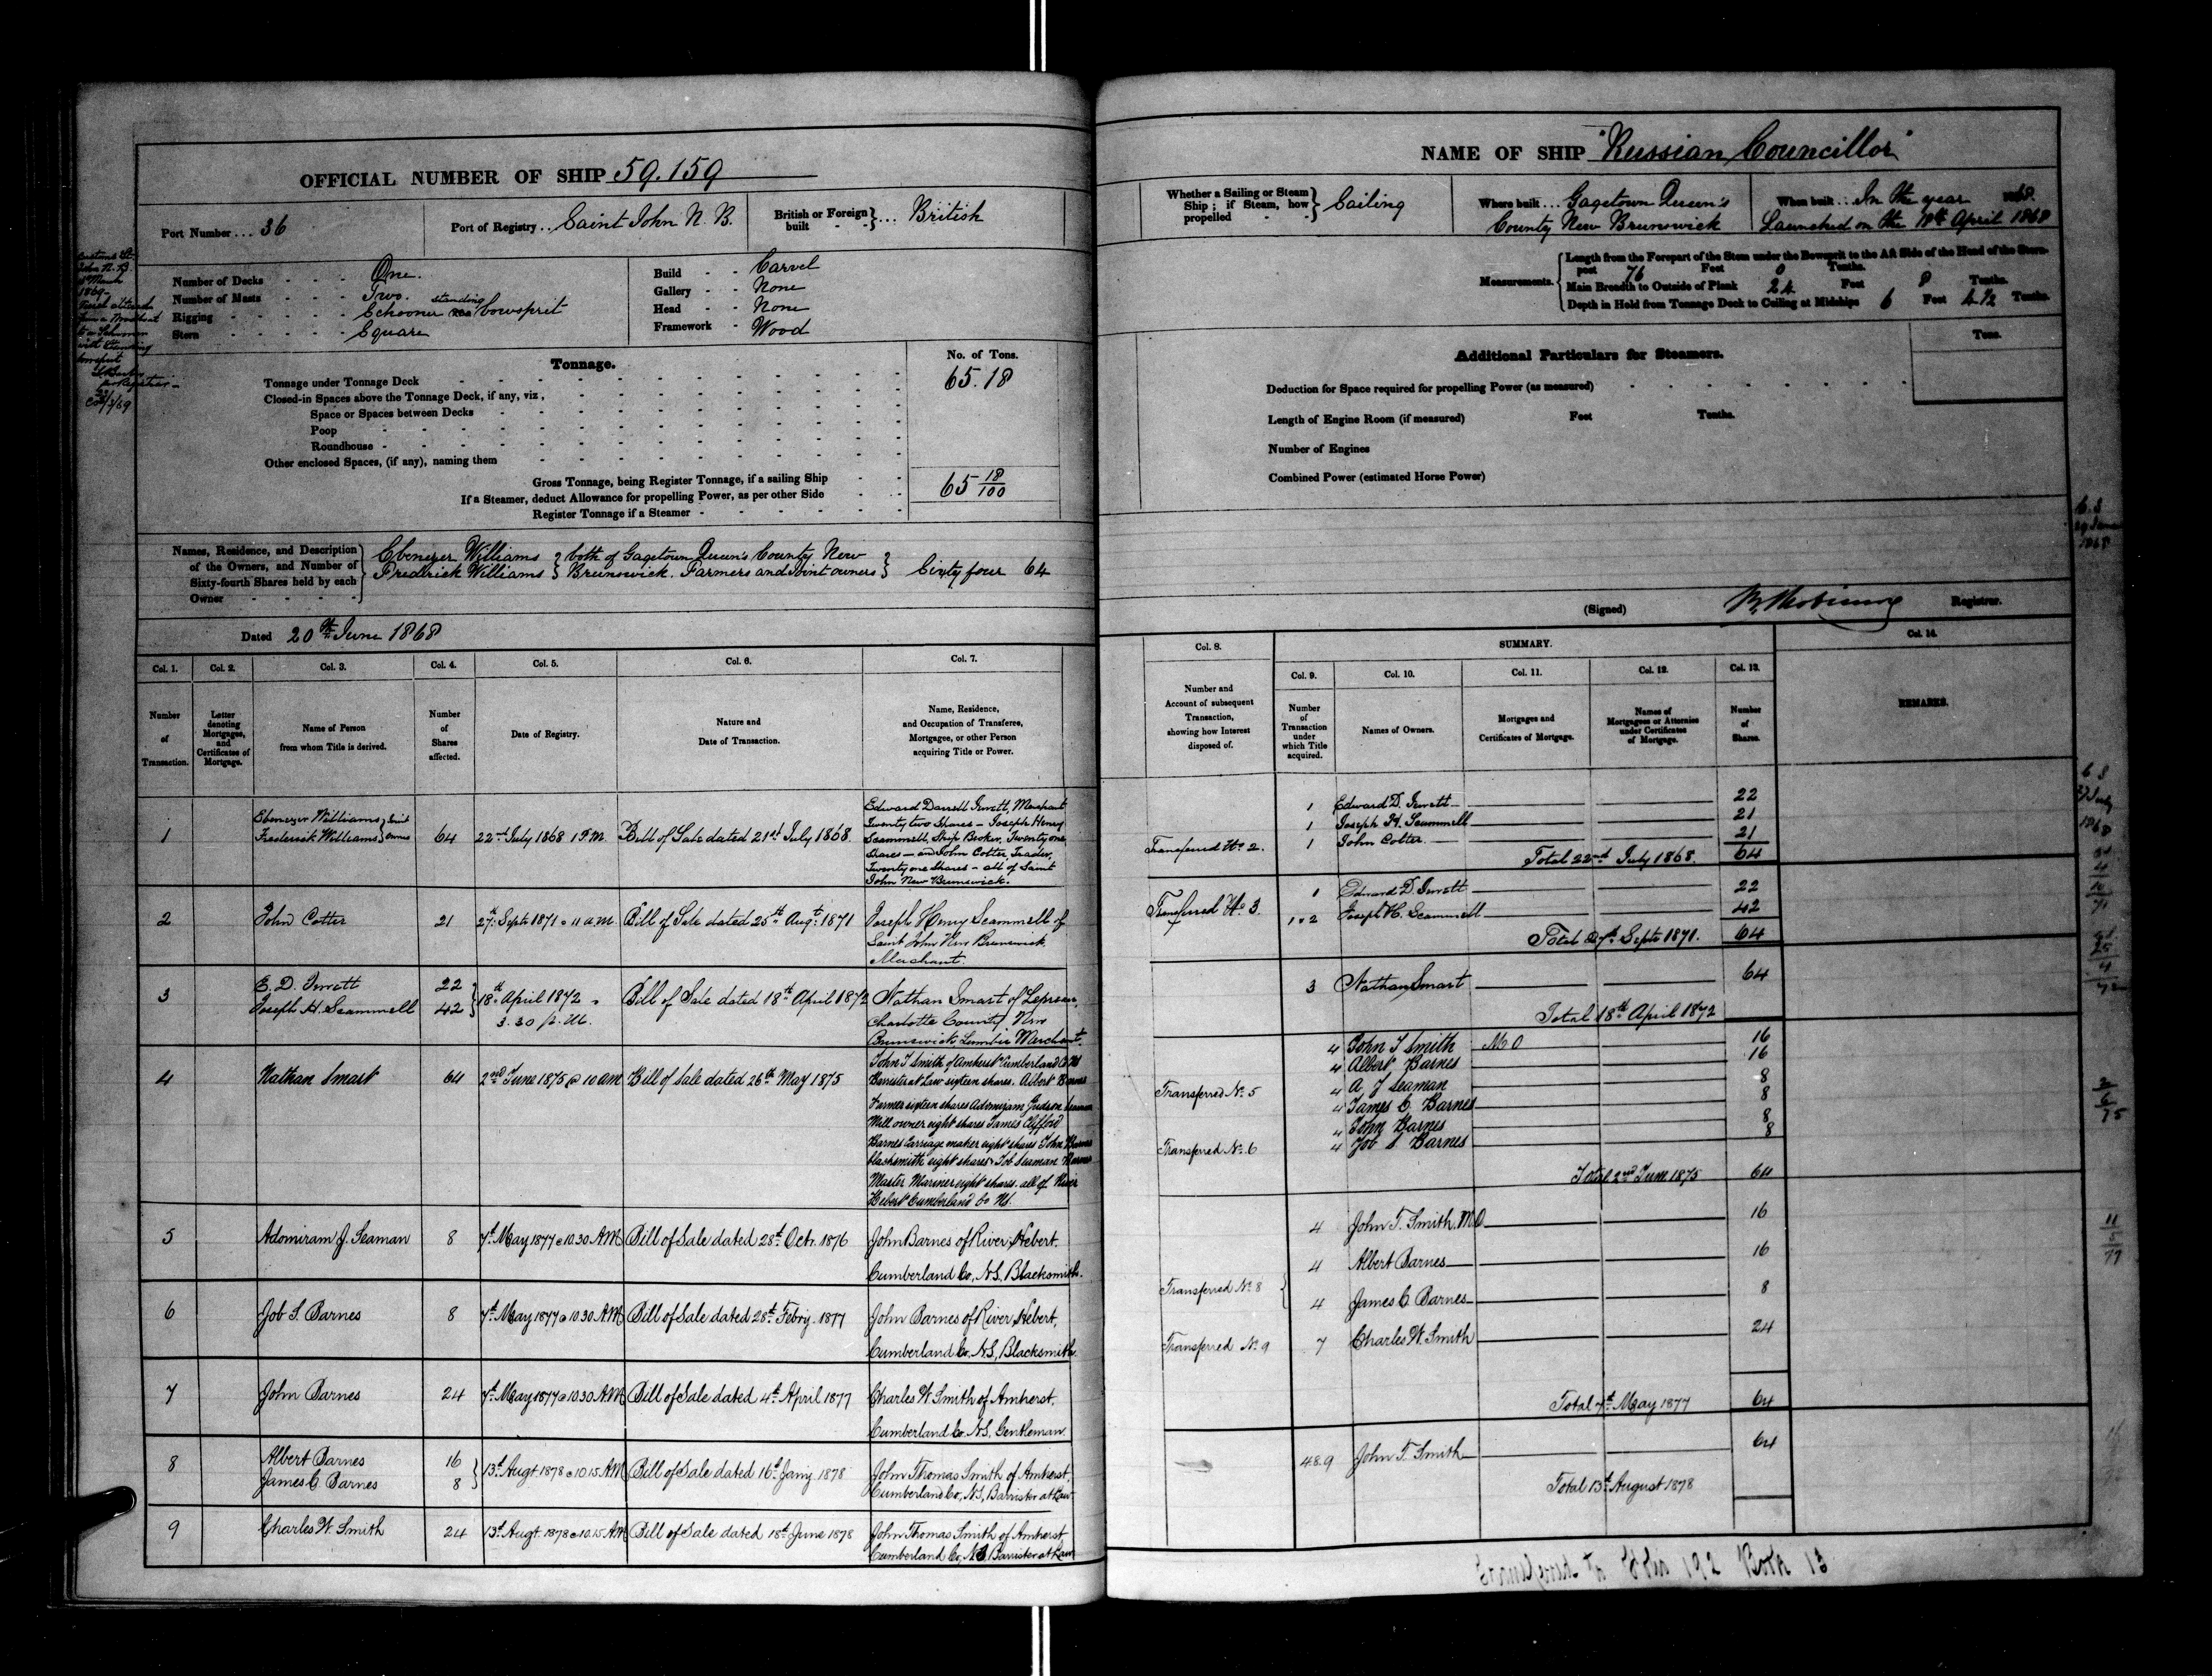 OFFICIAL NUMBER OF SHIP 59.159
Port Number ... 36
Port of Registry .. Saint John N. B.
British or Foreign built } ... British
Number of Decks - - - One.
Number of Masts - - - Two.
Rigging - - - Schooner standing bowsprit
Stern - - - Square
Build - - Carvel
Gallery - - None
Head - - None
Framework - Wood
Customs St.
John N. B.
March
1869
with standing
bowsprit
Registrar
Tonnage.
No. of Tons.
Tonnage under Tonnage Deck 65.18
Closed-in Spaces above the Tonnage Deck, if any, viz,
Space or Spaces between Decks
Poop
Roundhouse
Other enclosed Spaces, (if any), naming them
Gross Tonnage, being Register Tonnage, if a sailing Ship 65 18/100
If a Steamer, deduct Allowance for propelling Power, as per other Side
Register Tonnage if a Steamer
Names, Residence, and Description of the Owners, and Number of Sixty-fourth Shares held by each Owner
Ebenezer Williams } both of Gagetown Queen's County New
Fredrick Williams } Brunswick. Farmers and Joint owners } Sixty four 64
Dated 20th June 1868
Col. 1. Col. 2. Col. 3. Col. 4. Col. 5. Col. 6. Col. 7.
Number of Transaction.
Letter denoting Mortgages, and Certificates of Mortgage.
Name of Person from whom Title is derived.
Number of Shares affected.
Date of Registry.
Nature and Date of Transaction.
Name, Residence, and Occupation of Transferee, Mortgagee, or other Person acquiring Title or Power.
1
Ebenezer Williams } Joint
Frederick Williams } owners
64
22nd July 1868 1 P.M.
Bill of Sale dated 21st July 1868.
Edward Darrell Jewett, Merchant
Twenty two Shares - Joseph Henry
Scammell, Ship Broker, Twenty one
Shares - and John Cotter, Trader,
Twenty one Shares - all of Saint
John New Brunswick.
2
John Cotter
21
27th Septr 1871 @ 11 a.m.
Bill of Sale dated 25th Augt 1871
Joseph Henry Scammell of
Saint John New Brunswick.
Merchant.
3
E. D. Jewett 22
Joseph H. Scammell 42
18th April 1872
3.30 p.m.
Bill of Sale dated 18th April 1872
Nathan Smart of Lepreau,
Charlotte County New
Brunswick, Lumber Merchant.
4
Nathan Smart
64
2nd June 1875 @ 10 am
Bill of Sale dated 26th May 1875
John T Smith of Amherst Cumberland Co NS
Barrister at Law sixteen shares. Albert Barnes
Farmer sixteen shares Adomiram Judson Seaman
Mill owner eight shares James Clifford
Barnes Carriage maker eight shares John Barnes
blacksmith eight shares & Job Seaman Barnes
Master Mariner eight shares. all of River
Hebert Cumberland Co NS.
5
Adomiram J. Seaman
8
7th May 1877 @ 10.30 A.M.
Bill of Sale dated 28th Octr. 1876
John Barnes of River Hebert.
Cumberland Co, N.S, Blacksmith.
6
Job S. Barnes
8
7th May 1877 @ 10.30 A.M.
Bill of Sale dated 28th Febry. 1877
John Barnes of River Hebert,
Cumberland Co, N.S, Blacksmith.
7
John Barnes
24
7th May 1877 @ 10.30 A.M.
Bill of Sale dated 4th April 1877
Charles W. Smith of Amherst,
Cumberland Co. N.S, Gentleman.
8
Albert Barnes 16
James C Barnes 8
13th Augt 1878 @ 10.15 A.M.
Bill of Sale dated 16th Jany 1878
John Thomas Smith of Amherst,
Cumberland Co, N.S, Barrister at Law
9
Charles W. Smith
24
13th Augt. 1878 @ 10.15 A.M.
Bill of Sale dated 18th June 1878
John Thomas Smith of Amherst
Cumberland Co, N.S Barrister at Law
NAME OF SHIP "Russian Councillor"
Whether a Sailing or Steam Ship; if Steam, how propelled } Sailing
Where built ... Gagetown Queen's
County New Brunswick
When built ... In the year 1868.
Launched on the 18th April 1868
Measurements.
Length from the Forepart of the Stem under the Bowsprit to the Aft Side of the Head of the Stern-
post 76 Feet 0 Tenths.
Main Breadth to Outside of Plank 24 Feet 8 Tenths.
Depth in Hold from Tonnage Deck to Ceiling at Midships 6 Feet 4½ Tenths.
Additional Particulars for Steamers.
Tons.
Deduction for Space required for propelling Power (as measured)
Length of Engine Room (if measured) Feet Tenths.
Number of Engines
Combined Power (estimated Horse Power)
(Signed) Registrar.
Col. 8.
SUMMARY.
Col. 14.
Col. 9. Col. 10. Col. 11. Col. 12. Col. 13.
Number and Account of subsequent Transaction, showing how Interest disposed of.
Number of Transaction under which Title acquired.
Names of Owners.
Mortgages and Certificates of Mortgage.
Names of Mortgagees or Attornies under Certificates of Mortgage.
Number of Shares.
REMARKS.
1 Edward D. Jewett 22
1 Joseph H. Scammell 21
Transferred No. 2. 1 John Cotter 21
Total 22nd July 1868. 64
1 Edward D. Jewett 22
Transferred No. 3. 1 & 2 Joseph H. Scammell 42
Total 27th Septr 1871. 64
3 Nathan Smart 64
Total 18th April 1872
4 John T Smith M O 16
4 Albert Barnes 16
Transferred No. 5 4 A J Seaman 8
4 James C. Barnes 8
4 John Barnes 8
Transferred No. 6 4 Job S. Barnes 8
Total 2nd June 1875 64
4 John T. Smith. M.O 16
4 Albert Barnes 16
Transferred No. 8 { 4 James C. Barnes 8
Transferred No. 9 7 Charles W. Smith 24
Total 7th May 1877 64
4.8.9 John T. Smith 64
Total 13th August 1878